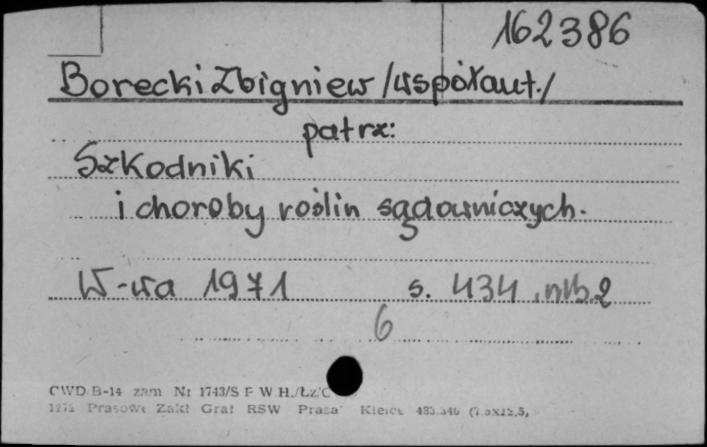 162386
Borecki Zbigniew /współaut./
patrz:
Szkodniki
i choroby roślin sądowniczych.
W-wa 1971 s. 434, nlb. 2
6
CWD B-14 zam Nr 1743/S F W.H./Łź/C
Prasowe Zakł Graf RSW "Prasa" Kielce